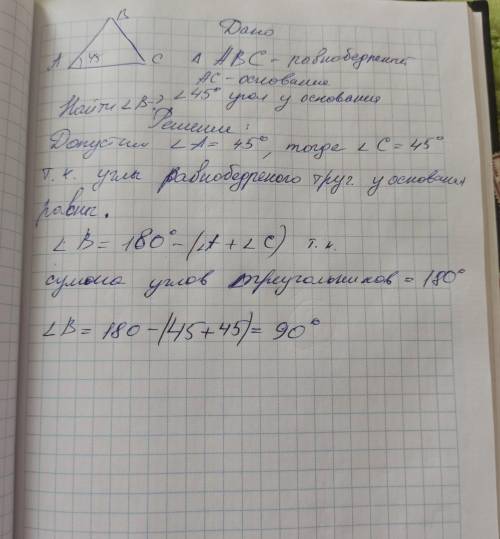 Дано
B
A 45 C
Δ ABC - равнобедренный
AC - основание
Найти ∠B-? ∠45° угол у основания
Решение:
Допустим ∠A = 45°, тогда ∠C = 45°
т. к. углы равнобедреного треуг. у основания
равны.
∠B = 180° - (∠A + ∠C) т. к.
сумма углов треугольников = 180°
∠B = 180 - (45 + 45) = 90°